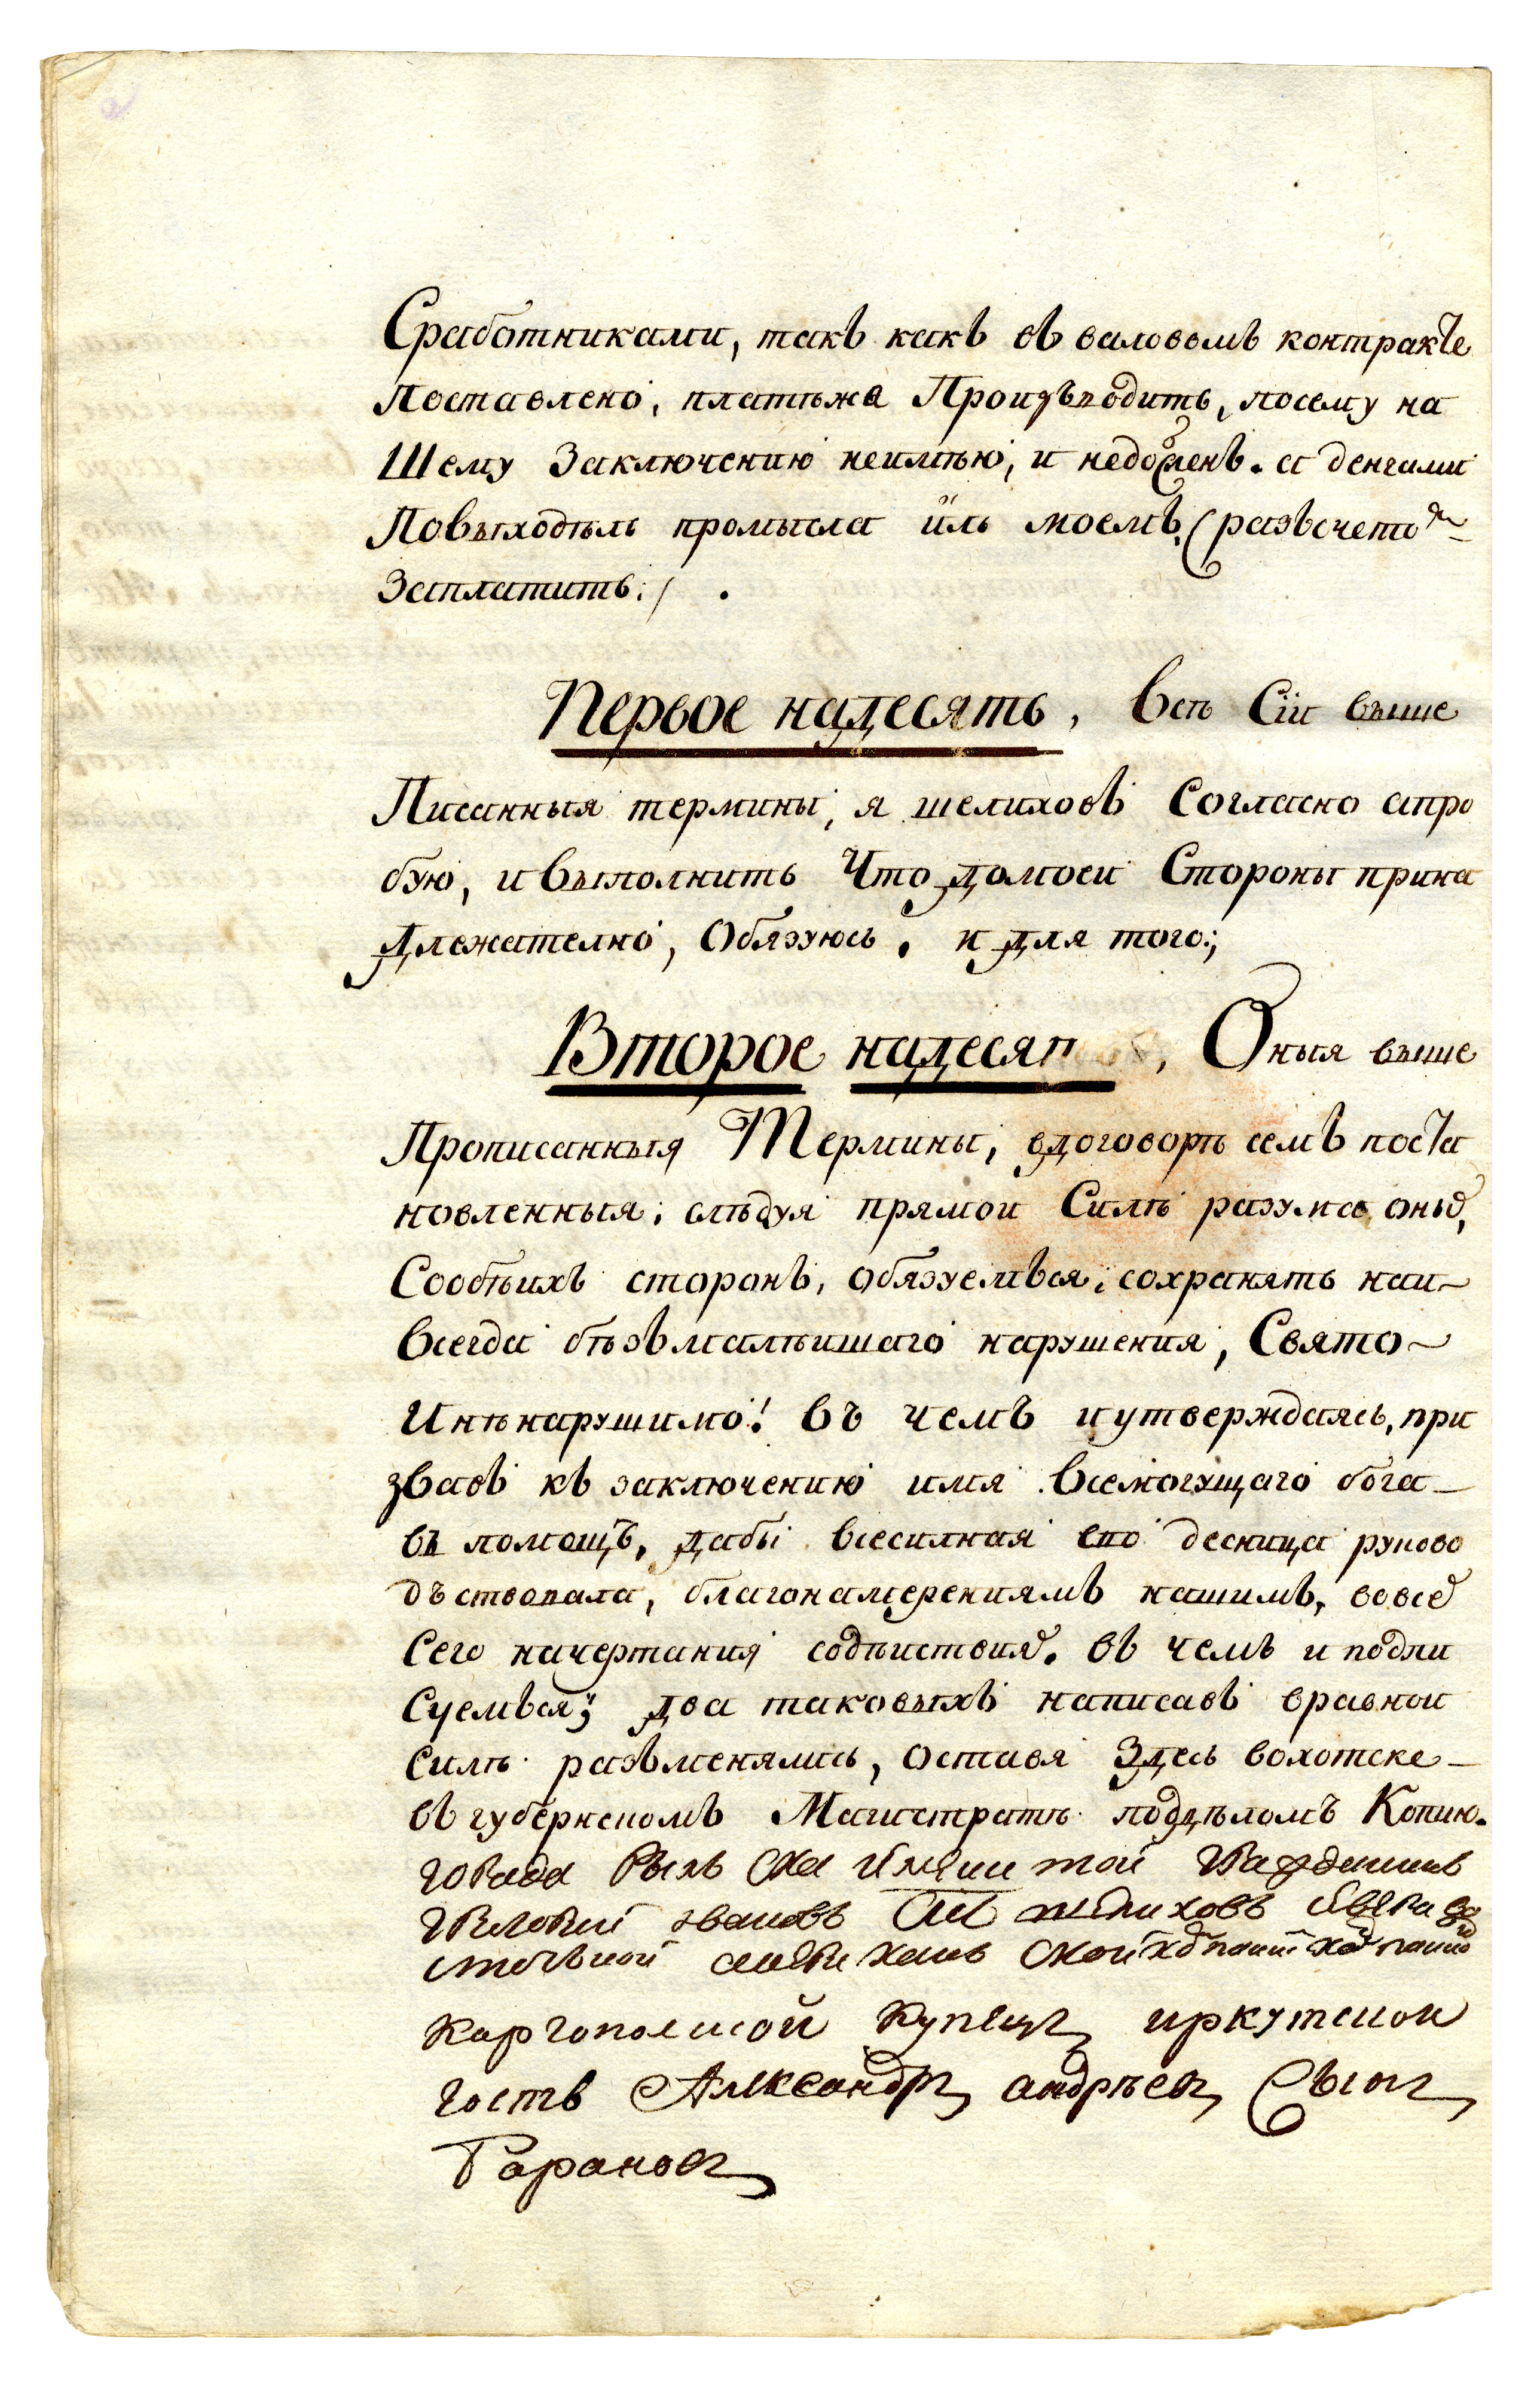 Сработниками, такъ какъ въ валовомъ контракте
Поставлено, платѣжа Произъводить, посему на
Шему Заключению неимѣю, и недолженъ. а денгами
Повыходѣль промысла иль моемъ (развсчето
Запълатить:/ .
Первое надесять, Всѣ Сіи выше
Писанныя термины, я шелиховъ Согласно апро
бую, и выполнить Что домоеи Стороны прина
длежателно, Обязуюсь. и для того;
Второе надесят, Оныя выше
Прописанныя Термины, вдоговорѣ семъ поста
новленныя, слѣдуя прямои Силѣ разума оныхъ,
Собѣихъ сторонъ, обязуемъся, сохранять наи
всегда бѣзъмалѣишаго нарушения, Свято
Инѣнарушимо! въ чемъ иутверждаясь, при
звавъ къ заключению имя всемогущаго бога
въ помощъ, дабы всесилная его десница руково
дъствовала, благонамерениямъ нашимъ, вовсе
Сего начертания содѣиствия. въ чемъ и подпи
Суемъся; два таковыхъ написавъ вравнои
Силѣ размѣнялись, оставя Здесь вохотске
въ губернскомъ Магистратѣ подцѣломъ Копию.
города Рыльска имянитой гражданинъ
григорей ивановъ Сынъ шелиховъ северо во
сточной американской компании
Каргополской купецъ иркутской
гость Александръ андрѣевъ Сынъ
Барановъ